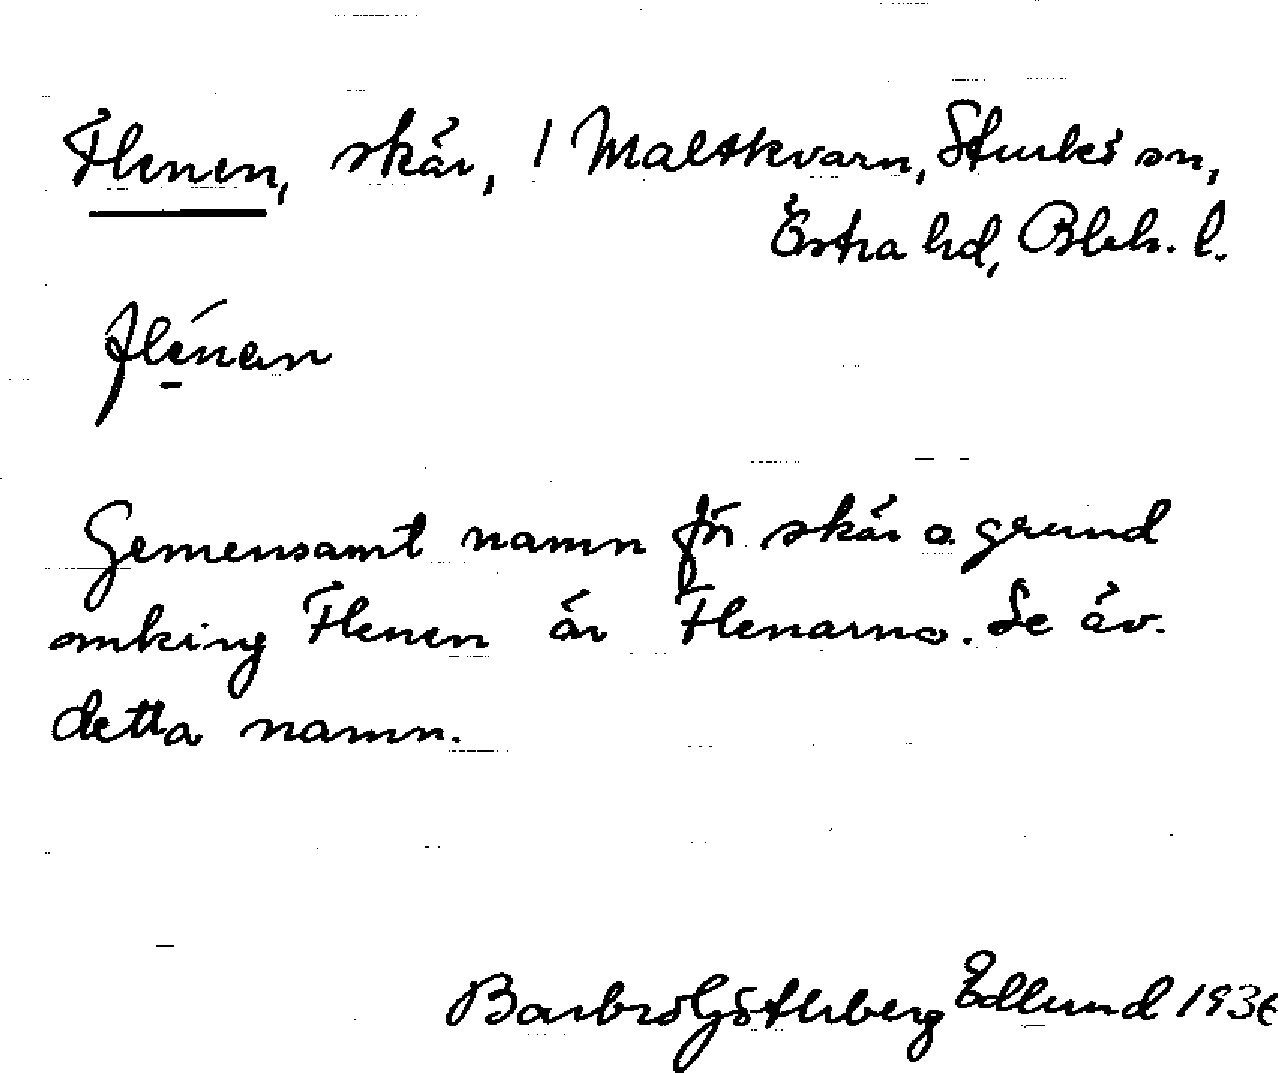 Flenen, skär, 1 Maltkvarn, Sturkö sn,
Östra hd, Blek. l.
flénan
Gemensamt namn för skär o grund
omkring Flenen är Flenarna. Se äv.
detta namn.
Barbro Götherberg Edlund 1936